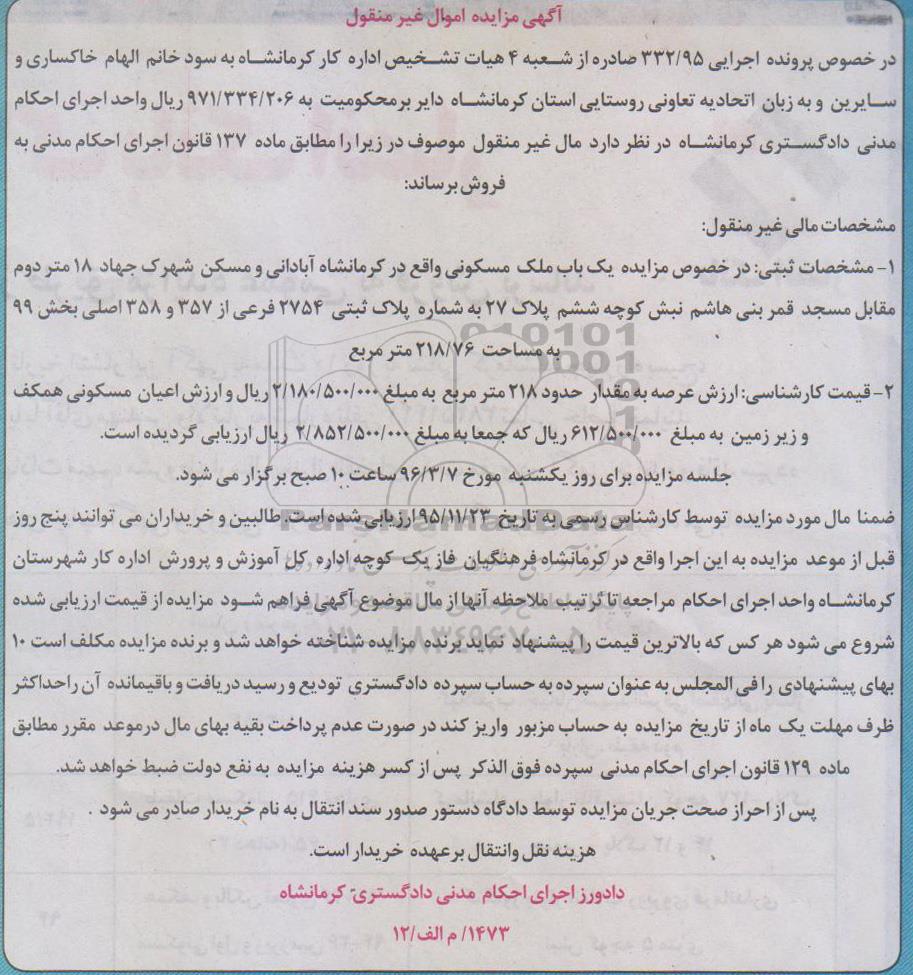 آگهی مزایده اموال غیر منقول
در خصوص پرونده اجرایی ۳۳۲/۹۵ صادره از شعبه ۴ هیات تشخیص اداره کار کرمانشاه به سود خانم الهام خاکساری و
سایرین و به زیان اتحادیه تعاونی روستایی استان کرمانشاه دایر برمحکومیت به ۹۷۱/۳۳۴/۲۰۶ ریال واحد اجرای احکام
مدنی دادگستری کرمانشاه در نظر دارد مال غیر منقول موصوف در زیر را مطابق ماده ۱۳۷ قانون اجرای احکام مدنی به
فروش برساند:
مشخصات مالی غیر منقول:
۱- مشخصات ثبتی: در خصوص مزایده یک باب ملک مسکونی واقع در کرمانشاه آبادانی و مسکن شهرک جهاد ۱۸ متر دوم
مقابل مسجد قمر بنی هاشم نبش کوچه ششم پلاک ۲۷ به شماره پلاک ثبتی ۲۷۵۴ فرعی از ۳۵۷ و ۳۵۸ اصلی بخش ۹۹
به مساحت ۲۱۸/۷۶ متر مربع
۲- قیمت کارشناسی: ارزش عرصه به مقدار حدود ۲۱۸ متر مربع به مبلغ ۲/۱۸۰/۵۰۰/۰۰۰ ریال و ارزش اعیان مسکونی همکف
و زیر زمین به مبلغ ۶۱۲/۵۰۰/۰۰۰ ریال که جمعا به مبلغ ۲/۸۵۲/۵۰۰/۰۰۰ ریال ارزیابی گردیده است.
جلسه مزایده برای روز یکشنبه مورخ ۹۶/۳/۷ ساعت ۱۰ صبح برگزار می شود.
ضمنا مال مورد مزایده توسط کارشناس رسمی به تاریخ ۹۵/۱۱/۲۳ ارزیابی شده است. طالبین و خریداران می توانند پنج روز
قبل از موعد مزایده به این اجرا واقع در کرمانشاه فرهنگیان فاز یک کوچه اداره کل آموزش و پرورش اداره کار شهرستان
کرمانشاه واحد اجرای احکام مراجعه تا ترتیب ملاحظه آنها از مال موضوع آگهی فراهم شود مزایده از قیمت ارزیابی شده
شروع می شود هر کس که بالاترین قیمت را پیشنهاد نماید برنده مزایده شناخته خواهد شد و برنده مزایده مکلف است ۱۰
بهای پیشنهادی را فی المجلس به عنوان سپرده به حساب سپرده دادگستری تودیع و رسید دریافت و باقیمانده آن راحداکثر
ظرف مهلت یک ماه از تاریخ مزایده به حساب مزبور واریز کند در صورت عدم پرداخت بقیه بهای مال درموعد مقرر مطابق
ماده ۱۲۹ قانون اجرای احکام مدنی سپرده فوق الذکر پس از کسر هزینه مزایده به نفع دولت ضبط خواهد شد.
پس از احراز صحت جریان مزایده توسط دادگاه دستور صدور سند انتقال به نام خریدار صادر می شود .
هزینه نقل وانتقال برعهده خریدار است.
دادورز اجرای احکام مدنی دادگستری- کرمانشاه
۱۴۷۳/ م الف/۱۲